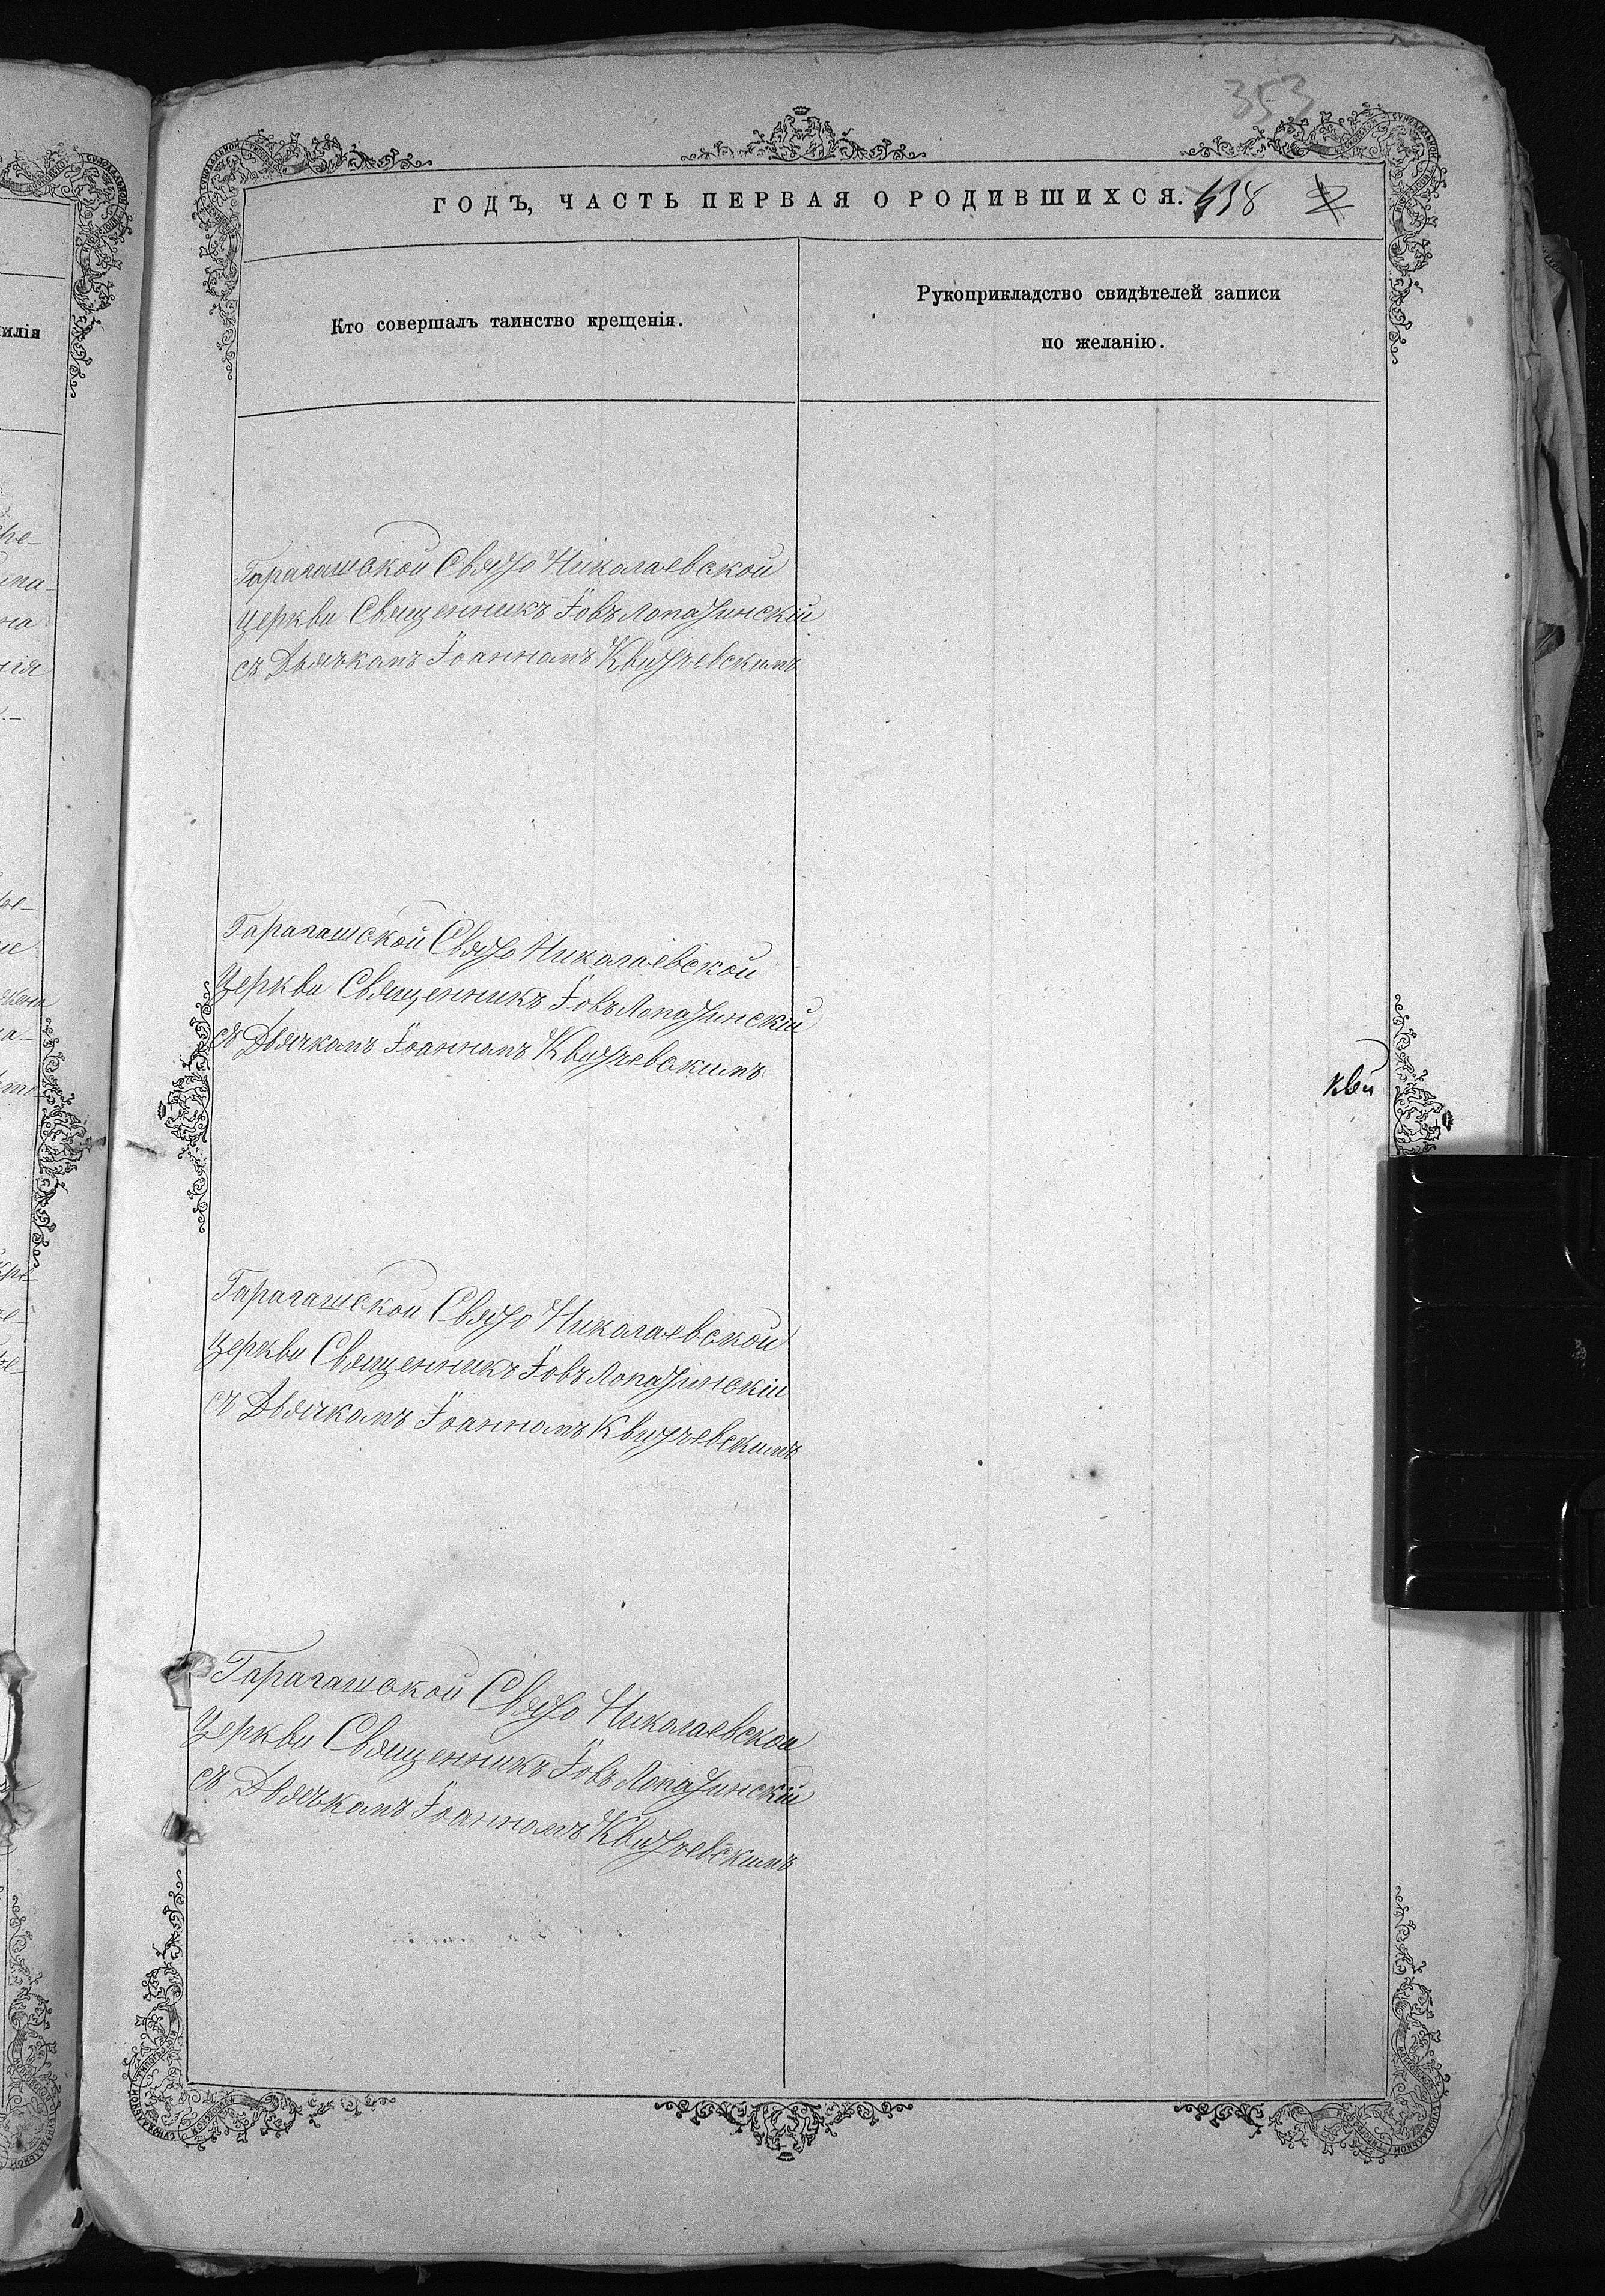 353
ГОДЪ, ЧАСТЬ ПЕРВАЯ О РОДИВШИХСЯ. 438
Кто совершалъ таинство крещенія.
Рукоприкладство свидѣтелей записи
по желанію.
илія
Гарагашской Свято Николаевской
церкви Священникъ Іовъ Лопатинскій
съ Дьячкомъ Іоанномъ Квитчевскимъ
Гарагашской Свято Николаевской
Церкви Священникъ Іовъ Лопатинскій
съ Дьячкомъ Іоанномъ Квитчевскимъ
квй
Гарагашской Свято Николаевской
Церкви Священникъ Іовъ Лопатинскій
съ Дьячкомъ Іоанномъ Квитчевскимъ
Гарагашской Свято Николаевской
Церкви Священникъ Іовъ Лопатинскій
съ Дьячкомъ Іоанномъ Квитчевскимъ